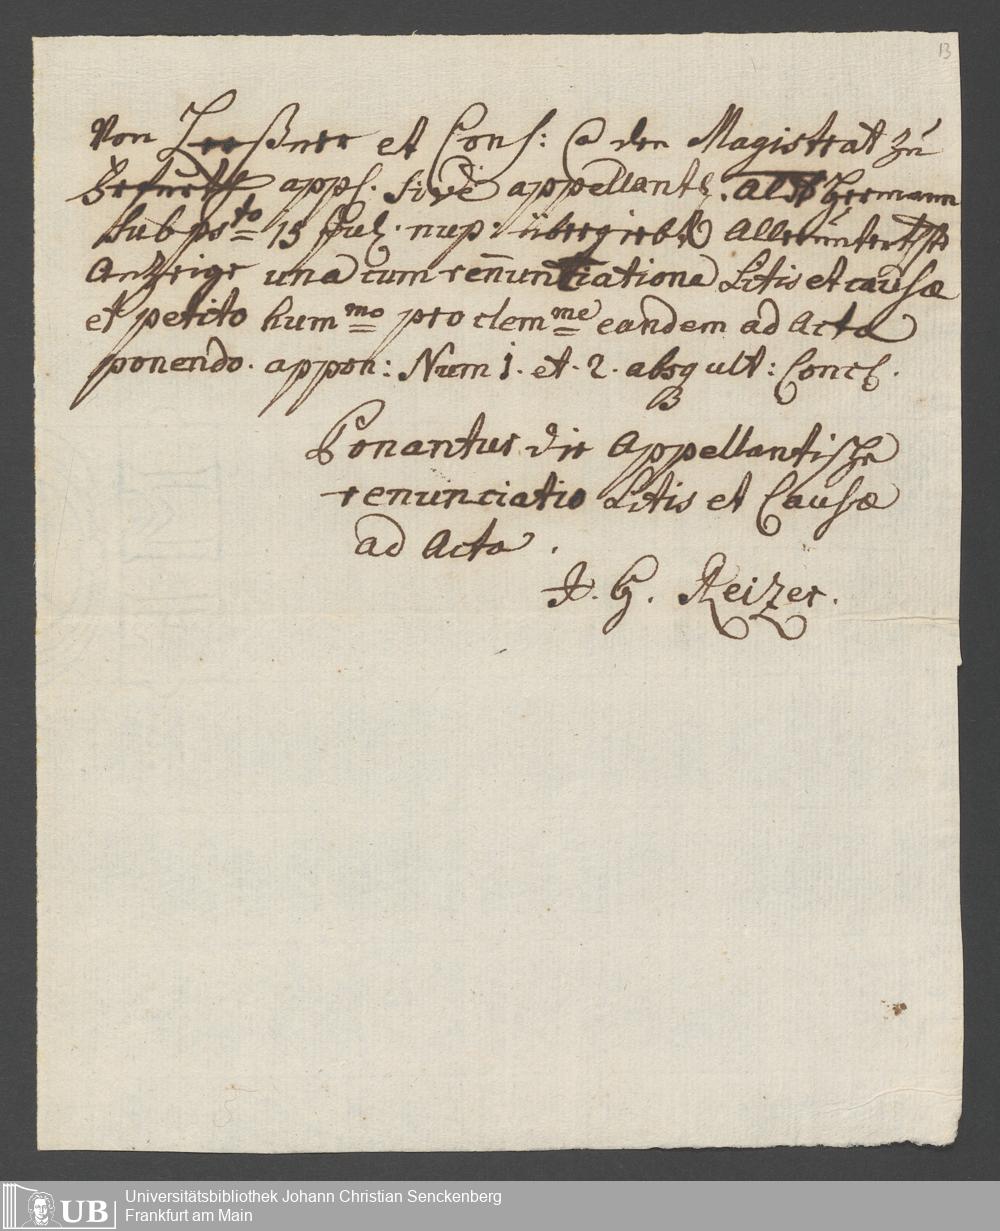 13
Von Zeeßner et Cons: Ca den Magistrat zu
Erfurth appl. sive appellantz. Alst Hermann
sub psto 15 Julz. nup: übergiebt Alleruntertste
Anzeige una cum renuntiatione Litis et causæ
et petito hummo pro clemme eandem ad Acta
ponendo. appon: Num 1. et. 2. absq ult: Concl.
Ponantur die Appellantische
renunciatio Litis et Causæ
ad Acta.
Reizer.
UB
Universitätsbibliothek Johann Christian Senckenberg
Frankfurt am Main